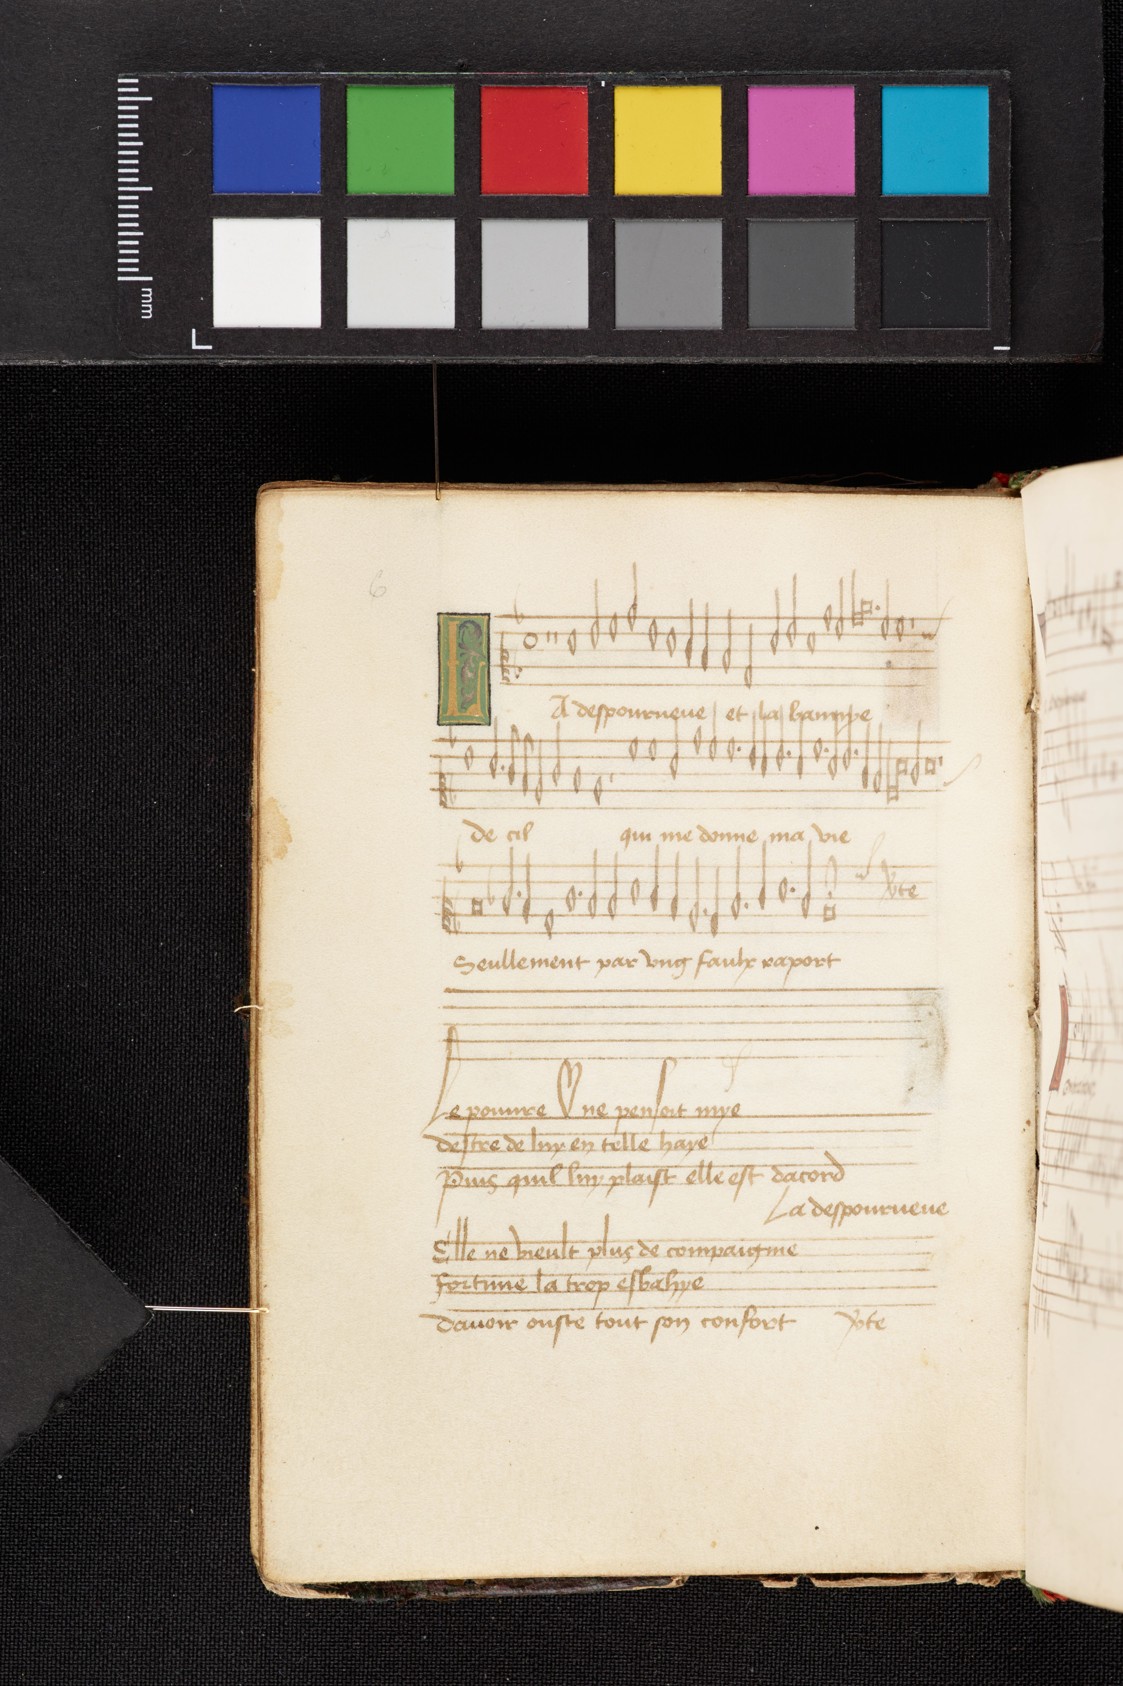 mm
6
LA despourveue et la bannye
de cil qui me donne ma vie
v̄te
Seullement par ung faulx raport
Le pouvre Q ne pensoit mye
destre de luy en telle haye
Puis quil luy plaist elle est dacord
La despourveue
Elle ne vieult plus de compaignie
fortune la trop esbahye
davoir ouste tout son confort v̄te